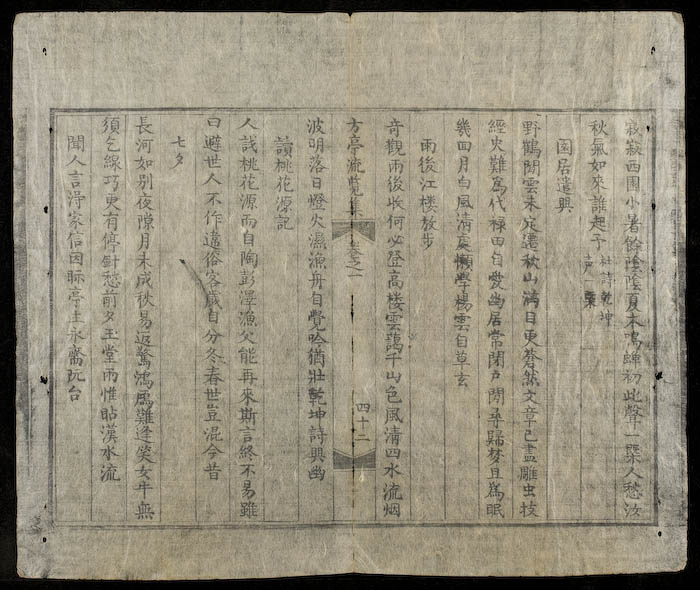 寂寂西園小暑餘陰陰夏木鳴蟬初此聲一槩人愁汝
秋氣如來誰起予杜詩乾坤
聲一槩
園居遣興
野鶴閑雲未定還秋山滿目更蒼然文章已盡雕虫技
經史難爲代祿田自愛幽居常閉戶閑尋歸梦且爲眠
幾四月白風清夜懶學楊雲自草玄
雨後江楼放步
奇觀雨後收何必登高楼雲藹千山色風清四水流烟
方亭流覽集 卷之一 四十二
波明落日燈火濕漁舟自覺吟猶壯乾坤詩興幽
讀桃花源記
人誠桃花源而自陶彭澤漁父能再來斯言終不易雖
曰避世人不作違俗客歲自分冬春世豈混今昔
七夕
長河如别夜隙月未成秋易返驚鴻鴈難逢笑女牛無
須乞線巧更有停針愁前夕玉堂雨惟貼漢水流
聞人言淂家信因眎亭主永齋阮台